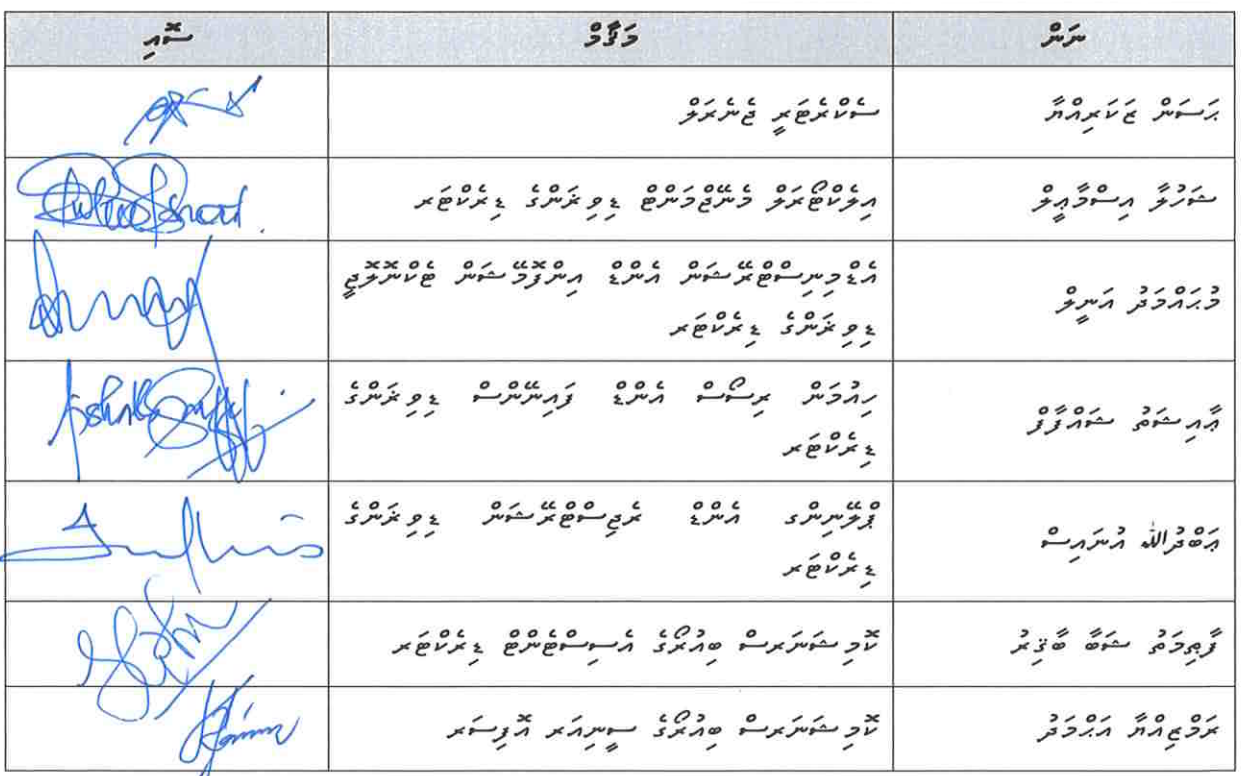 ނަން މަޤާމް ސޮއި
ޙަސަން ޒަކަރިއްޔާ ސެކްރެޓަރީ ޖެނެރަލް
ޝަހުލާ އިސްމާޢީލް އިލެކްޓޯރަލް މެނޭޖްމަންޓް ޑިވިޜަންގެ ޑިރެކްޓަރ
މުޙައްމަދު އަނީލް އެޑްމިނިސްޓްރޭޝަން އެންޑް އިންފޮމޭޝަން ޓެކްނޮލޮޖީ
ޑިވިޜަންގެ ޑިރެކްޓަރ
ޢާއިޝަތު ޝައްފާފް ހިއުމަން ރިސޯސް އެންޑް ފައިނޭންސް ޑިވިޜަންގެ
ޑިރެކްޓަރ
ޢަބްދުﷲ އުނައިސް ޕްލޭނިންގ އެންޑް ރެޖިސްޓްރޭޝަން ޑިވިޜަންގެ
ޑިރެކްޓަރ
ފާޠިމަތު ޝަބާ ބާޤިރު ކޮމިޝަނަރސް ބިއުރޯގެ އެސިސްޓެންޓް ޑިރެކްޓަރ
ރަމްޒިއްޔާ އަޙްމަދު ކޮމިޝަނަރސް ބިއުރޯގެ ސީނިއަރ އޮފިސަރ